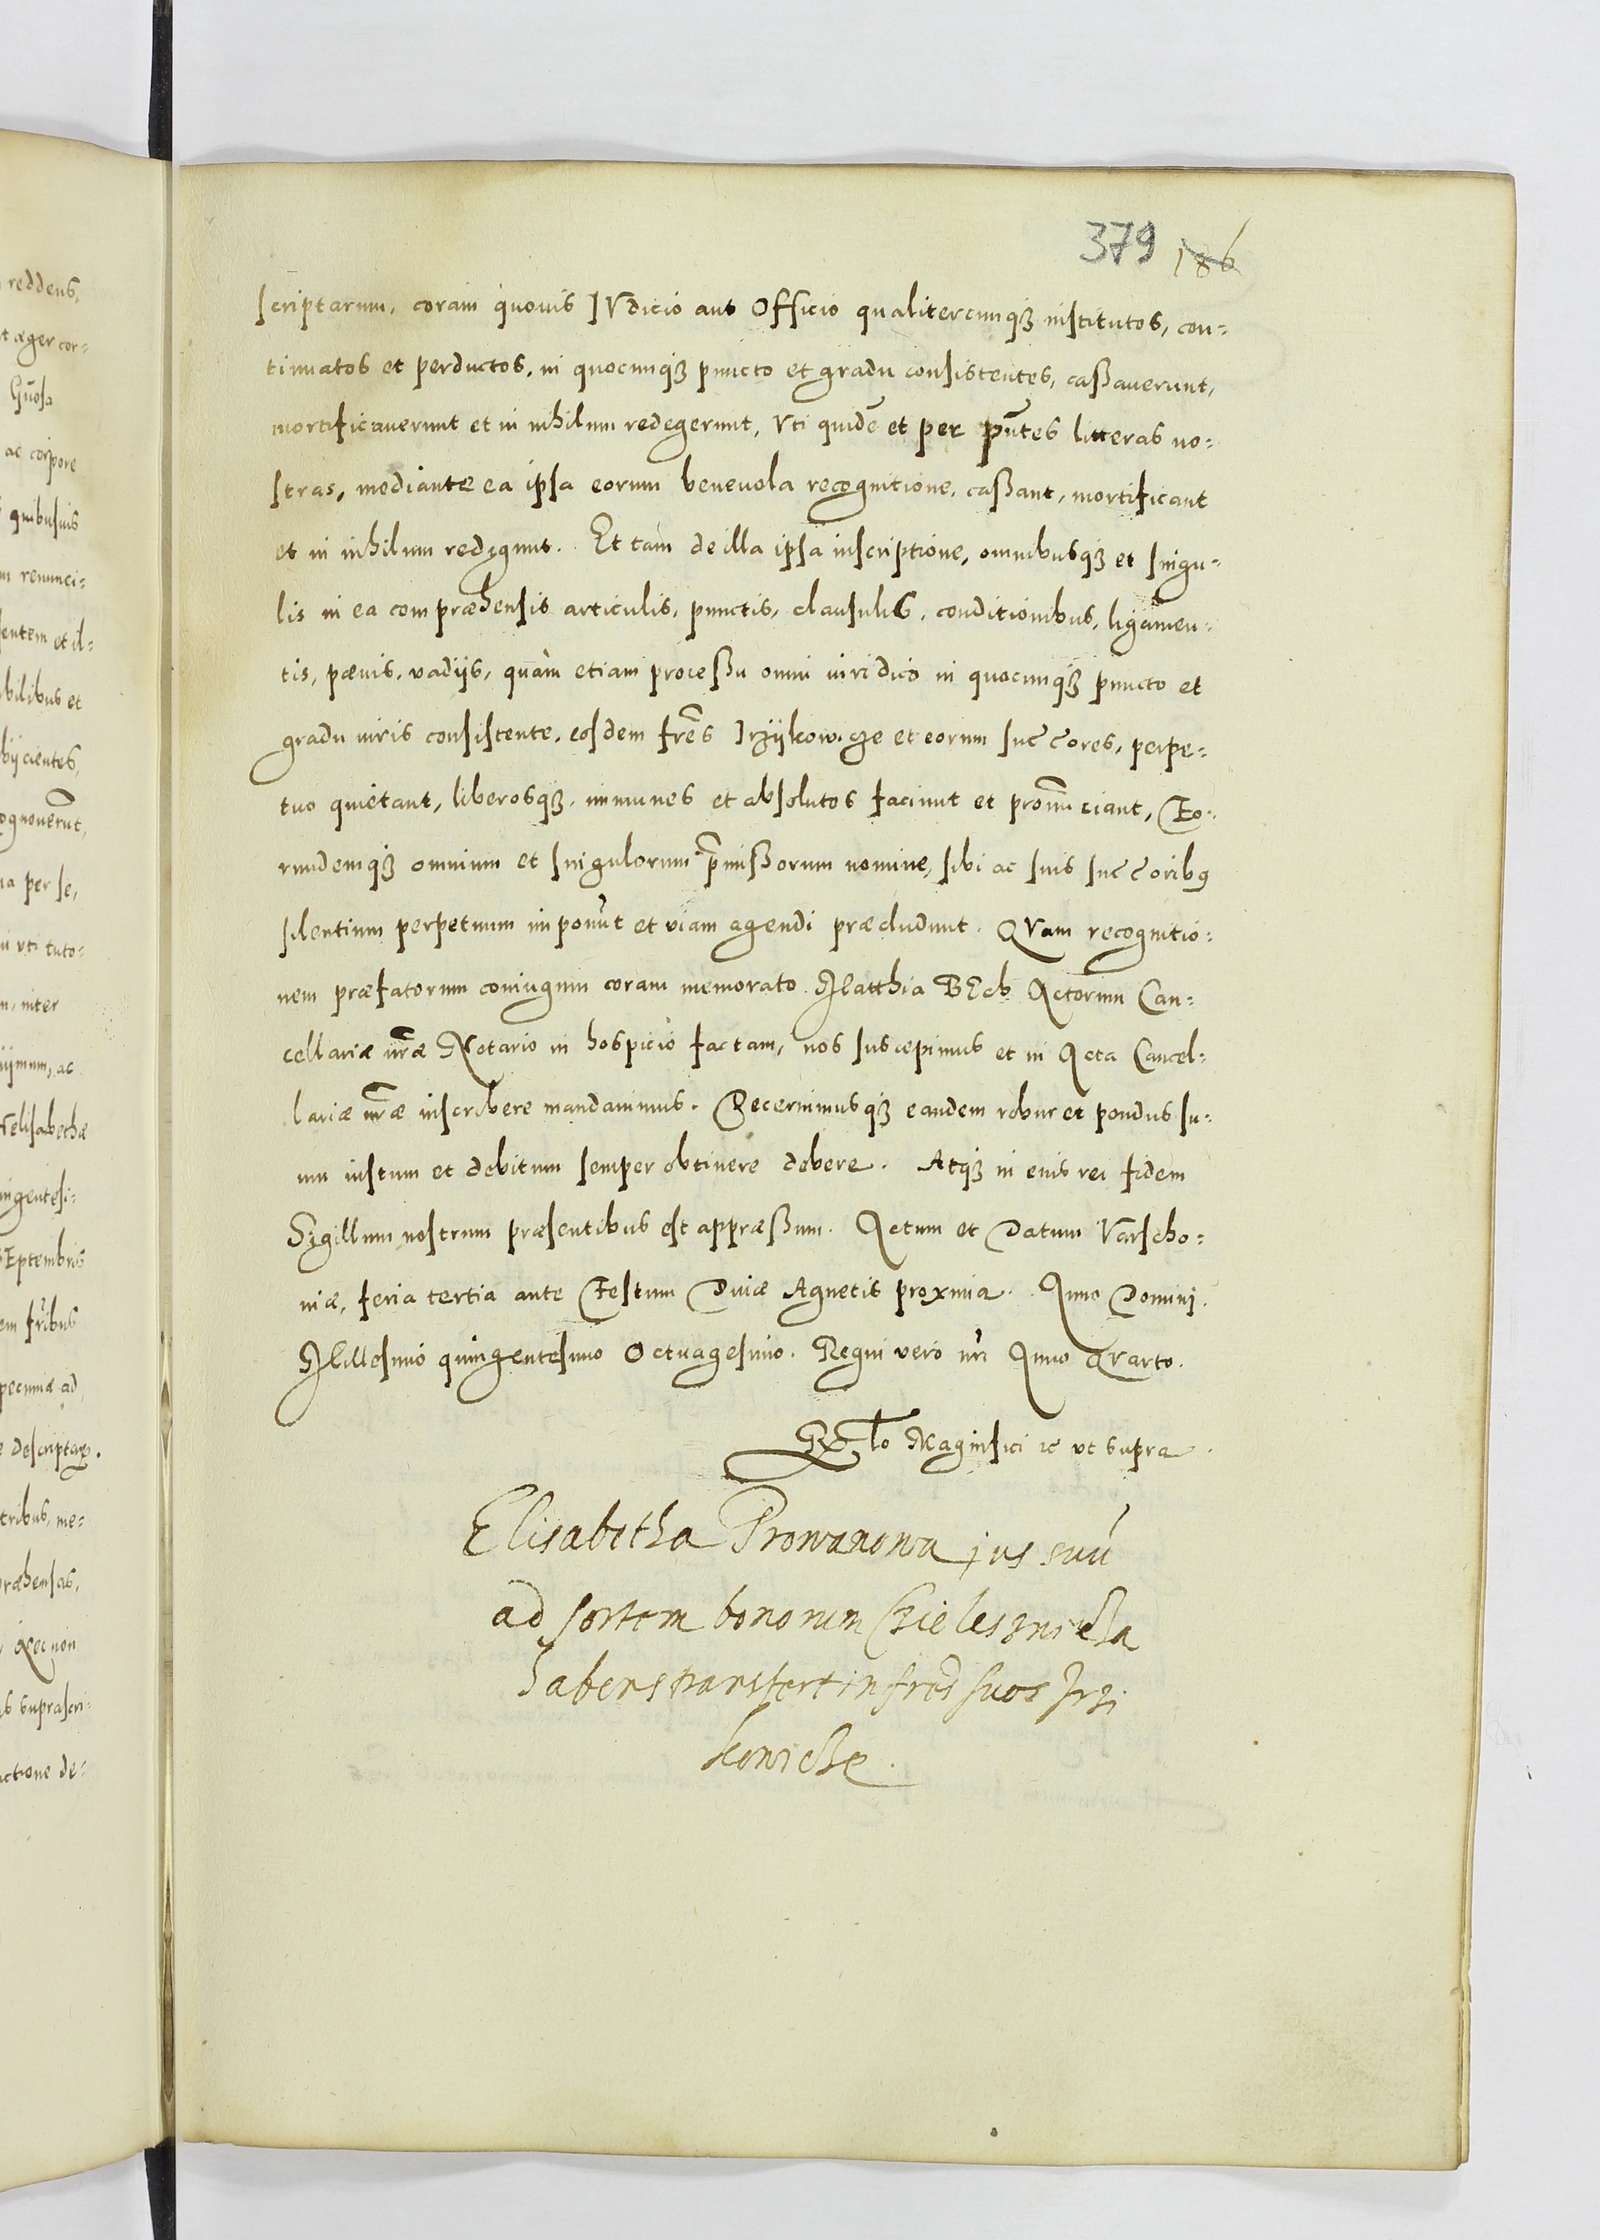 379 186
scriptarum, coram quovis IVdicio aut Officio qualitercunqꝫ institutos, con-
tinuatos et perductos, in quocunqꝫ puncto et gradu consistentes, caßauerunt,
mortificauerunt et in nihilum redegerunt, Vti quidē et per pñtes litteras no-
stras, mediante ea ipsa eorum beneuola recognitione, caßant, mortificant
et in nihilum redigunt. Et tam de illa ipsa inscriptione, omnibusqꝫ et singu-
lis in ea compræhensis articulis, punctis, clausulis, conditionibus, ligamen-
tis, pænis, vadijs, quàm etiam proceßu omni iuridico in quocunqꝫ puncto et
gradu iuris consistente, eosdem fr̃es Irzijkowicze et eorum succ̃ores, perpe-
tuo quietant, liberosqꝫ, immunes et absolutos faciunt et pronunciant, Eo-
rundemqꝫ omnium et singulorum p̃mißorum nomine, sibi ac suis succ̃oribꝰ
silentium perpetuum imponũt et viam agendi præcludunt. QVam recognitio-
nem præfatorum coniugum coram memorato Matthia BEch Actorum Can-
cellariæ nr̃æ Notario in hospicio factam, nos suscepimus et in Acta Cancel-
lariæ nr̃æ inscribere mandauimus. Decernimusqꝫ eandem robur et pondus su-
um iustum et debitum semper obtinere debere. Atqꝫ in euis rei fidem
Sigillum nostrum præsentibus est appræßum. Actum et Datum Varscho-
uiæ, feria tertia ante Festum Diuæ Agnetis proxima. Anno Domini
Millesimo quingentesimo Octuagesimo. Regni vero nr̃i Anno QVarto.
R̃el̃o Magnifici ꝛc vt supra.
Elisabetha Prowanowa jus suũ
ad sortem bonorum
habens transfert in fr̃es suos Irzi
kowicze.
reddens,
t æger cor-
ac corpore
quibusuis
m renunci-
sentem et il-
bilibus et
bijcientes,
ognouerũt,
na per se,
ni vti tuto-
n, inter
ijmum, ac
elisabethæ
ingentesi-
SEptembris
em fr̃ibus
pecuniæ ad
e descriptaꝝ.
tribus, me-
præhensas,
Necnon
is suprascri-
actione de-